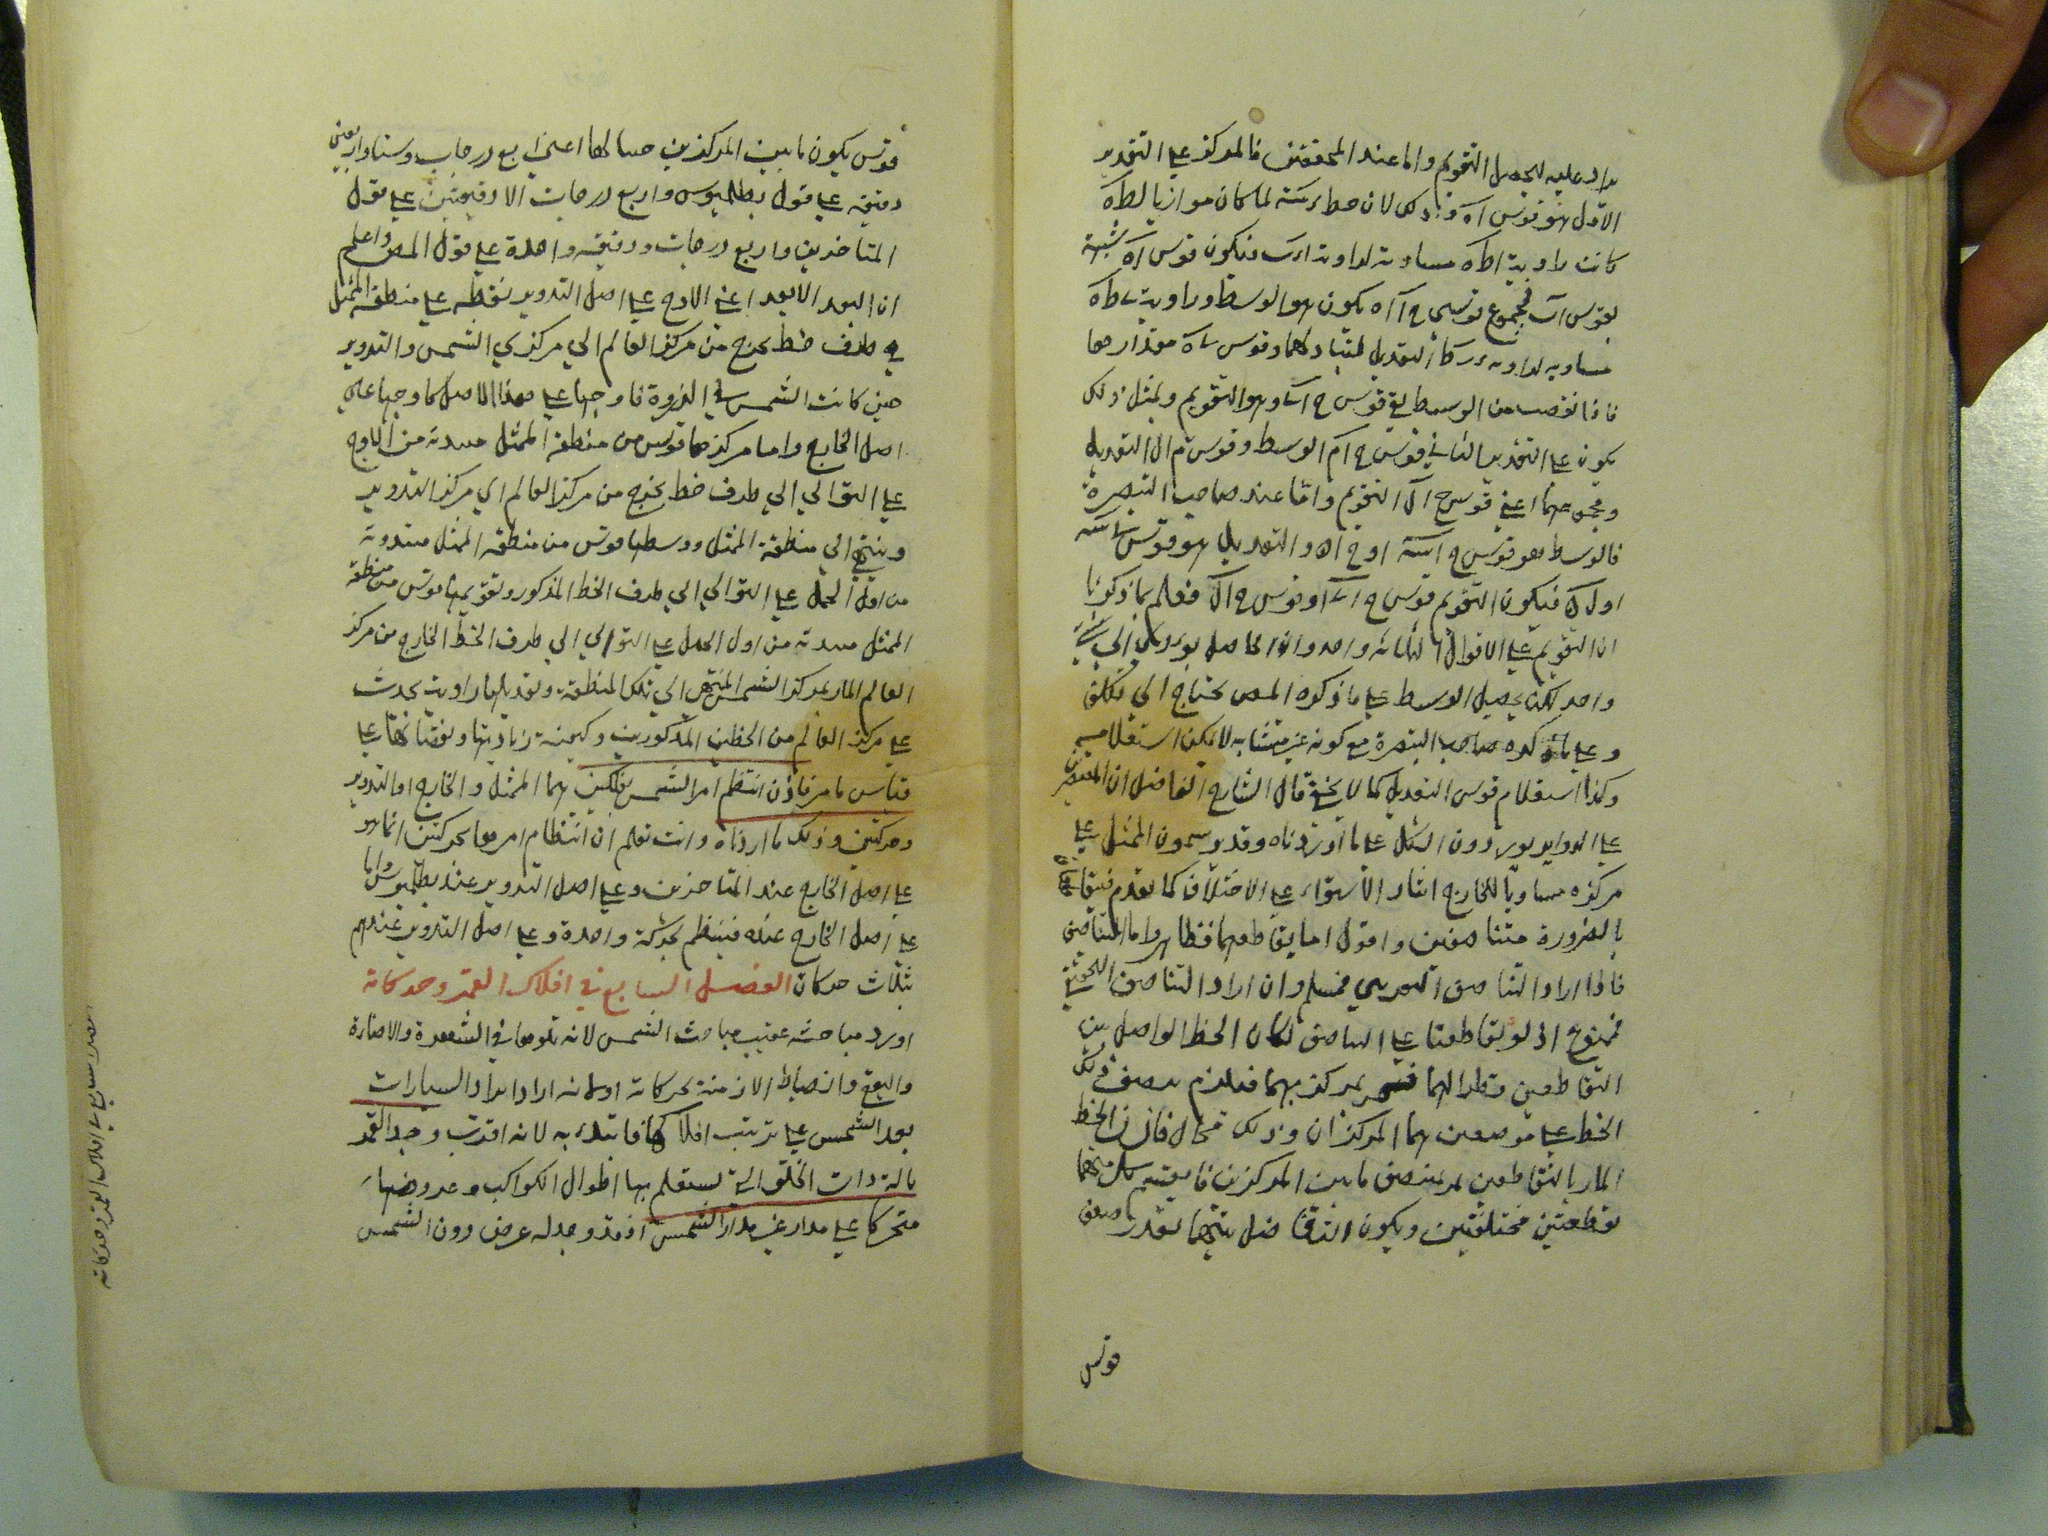 يزاد عليه ليحصل التقويم واما عند المحققين فالمركز على التقدير
الاول هو قوس اه وذلك لان خط لما كان موازيا لطه
كانت زاوية اطه مساوية لزاوية فيكون قوس اه شبيهة
بقوس اب فمجموع قوسي ح ا اه يكون هو الوسط وزاوية طه
مساوية لزاوية التعديل لتبادلهما وقوس مقدارها
فاذا نقصت من الوسط بقي قوس ح ا وهو التقويم وبمثل ذلك
يكون على التقدير الثاني قوس ح ام الوسط وقوس م ال التعديل
ومجموعهما اعني قوس ح ال التقويم واما عند صاحب التبصرة
فالوسط هو قوس ح او ح اه والتعديل هو قوس
او ل فيكون التقويم قوس ح ا او قوس ح ال فعلم بما ذكرنا
ان التقويم على الاقوال الثلثة واحد وان الحاصل يؤدي الى شيء
واحد لكن تحصيل الوسط على ما ذكره المص يحتاج الى تكلف
وعلى ما ذكره صاحب التبصرة مع كونه غير متشابه لا يمكن استعلامه
وكذا استعلام قوس التعديل كما لا يخفى قال الشارح الفاضل ان المقتصرين
على الدواير يوردون الشكل على ما اوردناه وقد يرسمون الممثل على
مركزه مساويا للخارج ايثار الاستواء على الاختلاف كما تقدم فيتقاطعان
بالضرورة متناصفين واقول اما تقاطعهما فظاهر واما التناصف
فاذا اراد التناصف التقريبي فمسلم وان اراد التناصف الحقيقي
فممنوع اذ لو تقاطعتا على التناصف لكان الخط الواصل بين
التقاطعين قطرا لهما فيمر بمركزيهما فيلزم تنصف ذلك
الخط على موضعين هما المركزان وذلك محال فاذن الخط
المار بالتقاطعين يمر بمنتصف ما بين المركزين فانقسم كل منهما
بقطعتين مختلفتين ويكون التفاضل بينهما بقدر ضعف
قوس
قوس يكون ما بين المركزين جيبا لها اعني اربع درجات وستا واربعين
دقيقة على قول بطلميوس واربع درجات الا دقيقتين على قول
المتاخرين واربع درجات ودقيقة واحدة على قول المص واعلم
ان البعد الابعد اعني الاوج على اصل التدوير نقطة على منطقة الممثل
في طرف خط يخرج من مركز العالم الى مركزي الشمس والتدوير
حين كانت الشمس في الذروة فاوجها على هذا الاصل كاوجها على
اصل الخارج واما مركزها فقوس من منطقة الممثل مبتدئة من الاوج
على التوالي الى طرف خط يخرج من مركز العالم الى مركز التدوير
وينتهي الى منطقة الممثل ووسطها قوس من منطقة الممثل مبتدئة
من اول الحمل على التوالي الى طرف الخط المذكور وتقويمها قوس من منطقة
الممثل مبتدئة من اول الحمل على التوالي الى طرف الخط الخارج من مركز
العالم المار بمركز الشمس المنتهي الى تلك المنطقة وتعديلها زاوية يحدث
على مركز العالم من الخطين المذكورين وكيفية زيادتها ونقصانها على
قياس ما مر فاذن انتظم امر الشمس بفلكين هما الممثل والخارج او التدوير
وحركتين وذلك ما اردناه وانت تعلم ان انتظام امرها بحركتين انما هو
على اصل الخارج عند المتاخرين وعلى اصل التدوير عند بطلميوس واما
على اصل الخارج عنده فينتظم بحركة واحدة وعلى اصل التدوير عندهم
بثلاث حركات الفصل السابع في افلاك القمر وحركاته
اورد مباحثه عقيب مباحث الشمس لانه تلوها في الشهرة والاضاءة
والنفع وانضباط الازمنة بحركاته او لانه اراد ايراد السيارات
بعد الشمس على ترتيب افلاكها فابتدء به لانه اقرب وجد القمر
بالة ذات الحلق التي يستعلم بها اطوال الكواكب وعروضها
متحركا على مدار غير مدار الشمس اذ قد وجد له عرض دون الشمس
الفصل السابع في افلاك القمر وحركاته